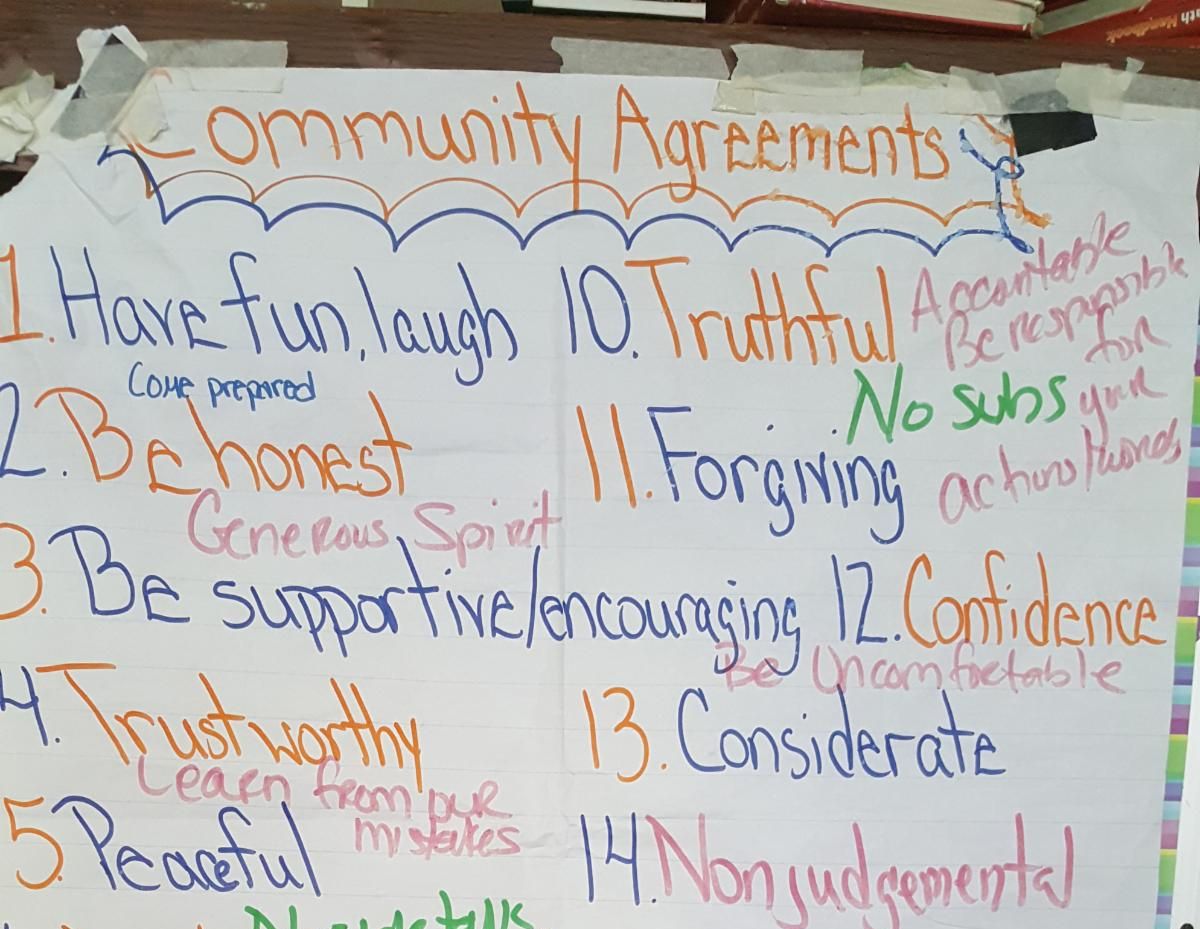 Handbook
Community Agreements
1. Have fun, laugh
Come prepared
2. Be honest
Generous Spirit
3. Be supportive/encouraging
4. Trustworthy
Learn from our
mistakes
5. Peaceful
No side talk
10. Truthful
Accountable
Be responsible
for
your
actions/words
No subs
11. Forgiving
12. Confidence
Be Uncomfortable
13. Considerate
14. Nonjudgemental